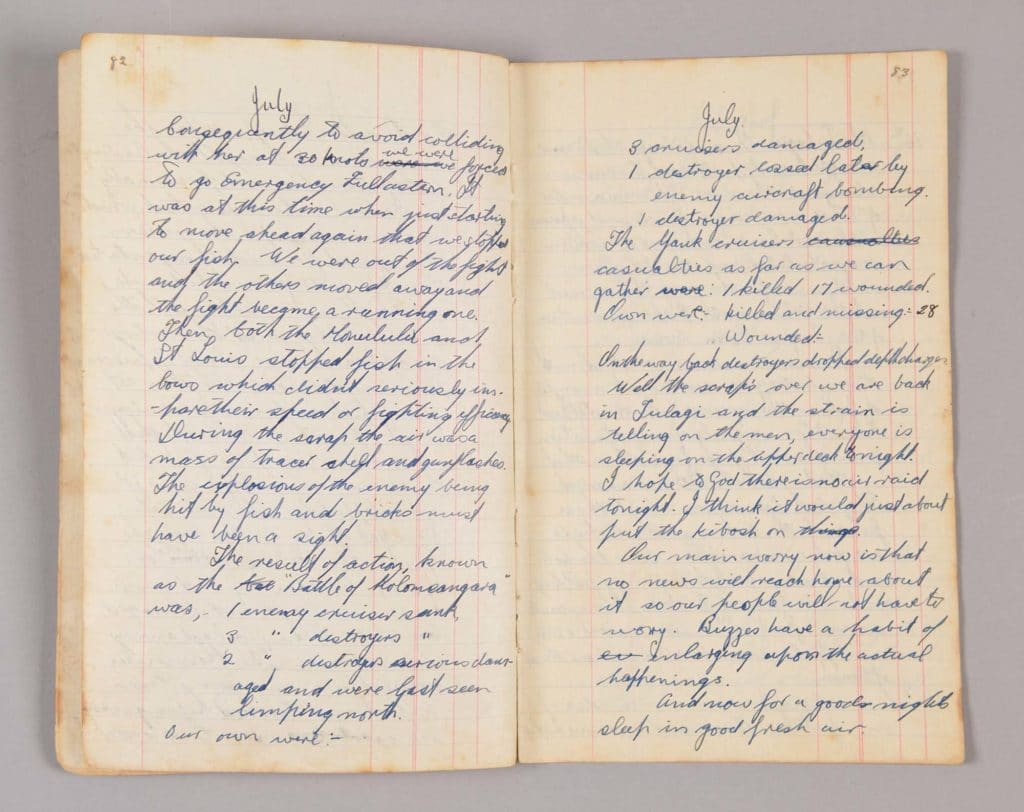 82
July
Conseqnantly to avoid colliding
with her at 30 knots were we we were forced
to go Emergency Full astern. It
was at this time when just starting
to move ahead again that we stopped
our fish. We were out of the fight
and the others moved away and
the fight became a running one.
Then both the Honululu and
St Louis stopped fish in the
bows which didn't seriously im-
-pare their speed or fighting efficiency
During the scrap the air was a
mass of tracer shell and gunflashes.
The explosions of the enemy being
hit by fish and bricks must
have been a sight.
The result of action, known
as the "Battle of Kolombangara"
was,- 1 enemy cruiser sunk,
3 " destroyers "
2 " destroyers serious dam-
aged and were last seen
limping north.
Our own were:-
83
July
3 cruisers damaged,
1 destroyer lossed later by
enemy aircraft bombing.
1 destroyer damaged.
The Yank cruisers
casualties as far as we can
gather were: 1 killed 17 wounded.
Own were:- killed and missing:- 28
Wounded:-
On the way back destroyers dropped depth charges
Well the scrap's over we are back
in Tulagi and the strain is
telling on the men, everyone is
sleeping on the upper deck tonight.
I hope to God there is no air raid
tonight. I think it would just about
put the kibosh on things.
Our main worry now is that
no news will reach home about
it so our people will not have to
worry. Buzzes have a habit of
ev enlarging upon the actual
happenings.
And now for a goods nights
sleep in good fresh air.